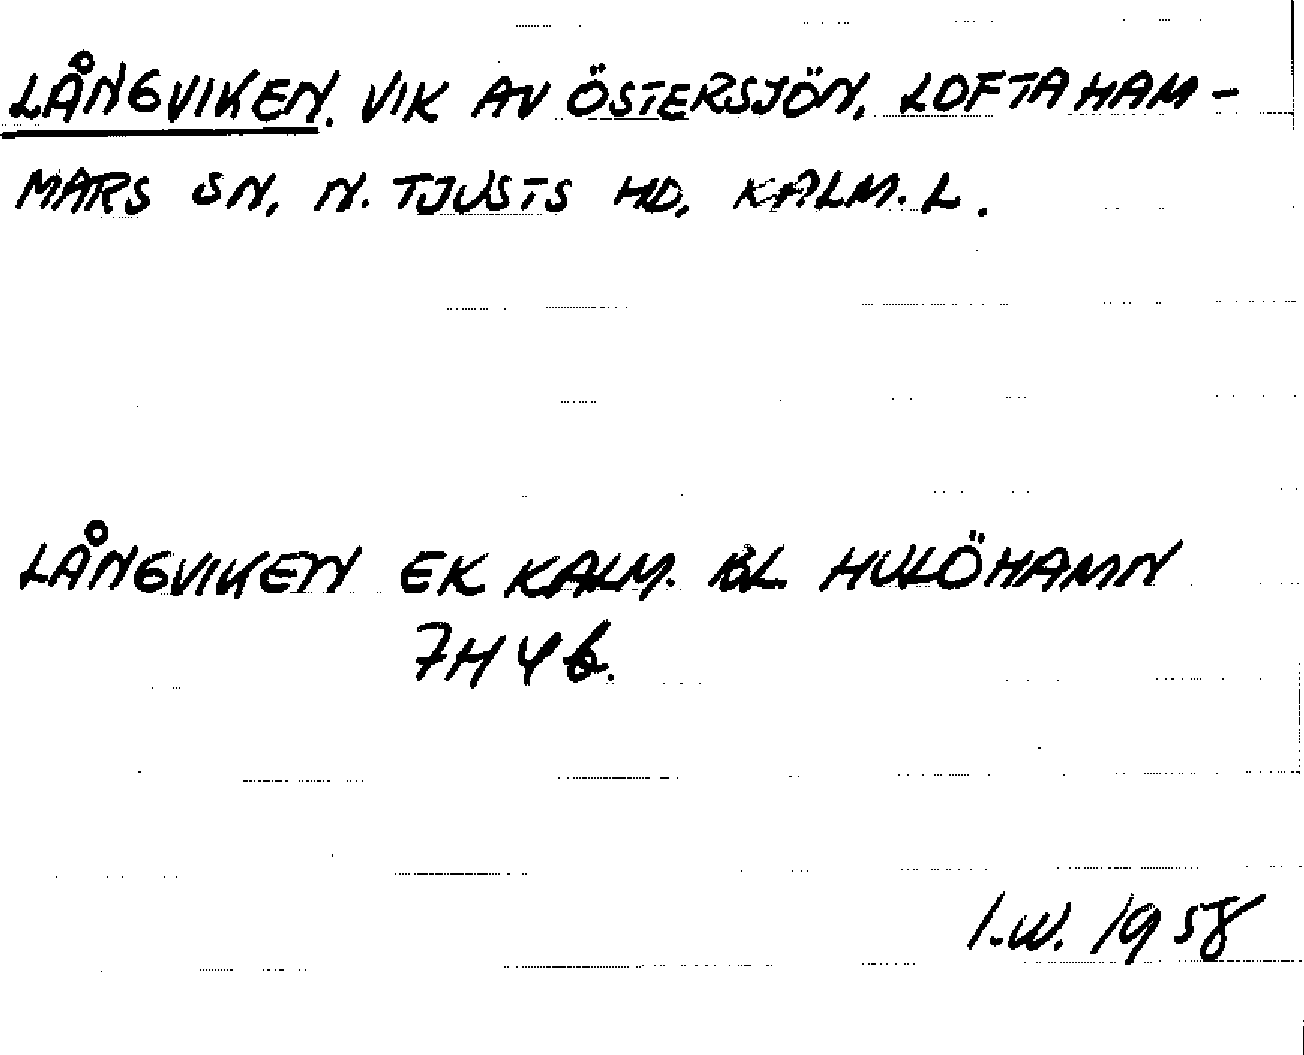 LÅNGVIKEN. VIK AV ÖSTERSJÖN, LOFTAHAM-
MARS SN, N. TJUSTS HD, KALM. L.
LÅNGVIKEN EK KALM. BL. HULÖHAMN
7H4b.
I.W. 1958